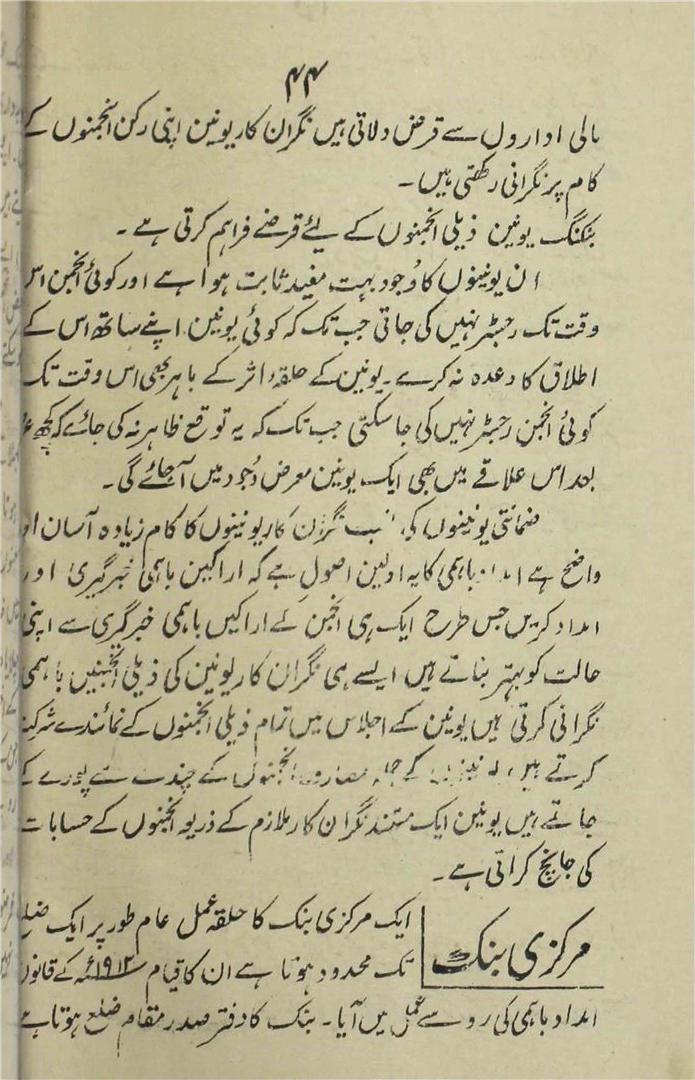 ۴۴
مالی اداروں سے قرض دلاتی ہیں نگران کار یونین اپنی رکن انجمنوں کے
کام پر نگرانی رکھتی ہیں۔
بنکنگ یونین ذیلی انجمنوں کے لئے قرضے فراہم کرتی ہے۔
ان یونینوں کا وجود بہت مفید ثابت ہوا ہے اور کوئی انجمن اس
وقت تک رجسٹر نہیں کی جاتی جب تک کہ کوئی یونین اپنے ساتھ اس کے
اطلاق کا وعدہ نہ کرے۔ یونین کے حلقۂ اثر کے باہر بھی اس وقت تک
کوئی انجمن رجسٹر نہیں کی جا سکتی جب تک کہ یہ توقع ظاہر نہ کی جائے کہ کچھ
بعد اس علاقے میں بھی ایک یونین معرض وجود میں آجائے گی۔
ضمانتی یونینوں کی نگران کار یونینوں کا کام زیادہ آسان
واضح ہے امداد باہمی کا یہ اولین اصول ہے کہ اراکین باہمی خبرگیری اور
امداد کریں جس طرح ایک ہی انجمن کے اراکیں باہمی خبرگیری سے اپنی
حالت کو بہتر بناتے ہیں ایسے ہی نگران کار یونین کی ذیلی انجمنیں باہمی
نگرانی کرتی ہیں یونین کے اجلاس میں تمام ذیلی انجمنوں کے نمائندے شرکت
کرتے ہیں کے انجمنوں کے چندے سے پورے کئے
جاتے ہیں یونین ایک مستند نگران کار ملازم کے ذریعہ انجمنوں کے حسابات
کی جانچ کراتی ہے۔
مرکزی بنک
ایک مرکزی بنک کا حلقہ عمل عام طور پر ایک ضلع
تک محدود ہوتا ہے ان کا قیام ۱۹۱۲ئہ کے قانون
امداد باہمی کی رو سے عمل میں آیا۔ بنک کا دفتر صدر مقام ضلع ہوتا ہے